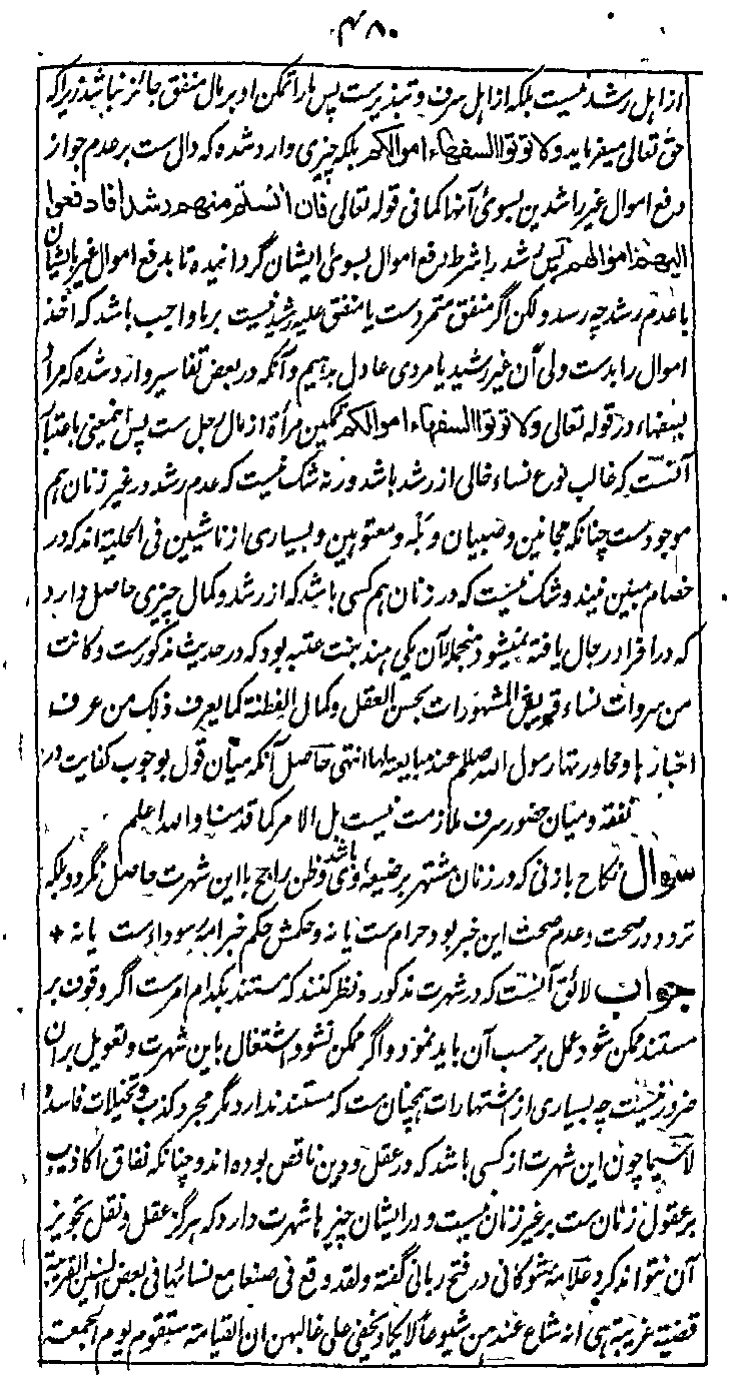 ۴۸۰
از اہل رشد نیست بلکہ از اہل سرف و تبذیرست پس مارا تمکن او بر مال منفق جائز نباشد زیراکہ
حق تعالی میفرماید ولا توتوا السفهاء اموالکم بلکہ چیزی وارد شده کہ دال ست بر عدم جواز
دفع اموال غیر راشدین بسوئ آنها کما فی قولہ تعالی فان انستم منهم رشدا فادفعوا
الیهم اموالهم پس رشد را شرط دفع اموال بسوئ ایشان گردانیده تا بدفع اموال غیر ایشان
با عدم رشد چہ رسد ولکن اگر منفق متمردست یا منفق علیہ رشید نیست بر ما واجب باشد کہ اخذ
اموال را بدست ولی آن غیر رشید یا مردی عادل بدہیم و آنکہ در بعض تفاسیر وارد شده کہ مراد
بسفهاء در قولہ تعالی ولا توتوا السفهاء اموالکم تمکین مرأة از مال رجل ست پس اینمعنی باعتبار
آنست کہ غالب نوع نساء خالی از رشد باشد ورنہ شک نیست کہ عدم رشد در غیر زنان ہم
موجودست چنانکہ مجانین و صبیان و بلہ و معتوہین و بسیاری از ناشیین فی الحلیة اند کہ در
خصام مبین نیند و شک نیست کہ در زنان ہم کسی باشد کہ از رشد و کمال چیزی حاصل دارد
کہ در افراد رجال یافتہ نمیشود منجملہ آن یکی ہند بنت عتبہ بود کہ در حدیث مذکورست و کانت
من سروات نساء قریش المشهورات بحسن العقل و کمال الفطنة کما یعرف ذلک من عرف
اخبارها و محاورتها رسول اللہ صلعم عند مبایعتہ لها انتهی حاصل آنکہ میان قول بوجوب کفایت در
نفقہ و میان حضور سرف ملازمت نیست بل الامر کما قدمنا واللہ اعلم
سوال نکاح با زنی کہ در زنان مشتهر برضیعۂ وی باشد و ظن راجح با این شهرت حاصل نگردد بلکہ
تردد در صحت و عدم صحت این خبر بود حرام ست یا نہ و حکمش حکم خبر امۂ سوداءست یا نہ +
جواب لائق آنست کہ در شهرت مذکور و نظر کنند کہ مستند بکدام امرست اگر وقوف بر
مستند ممکن شود عمل بر حسب آن باید نمود و اگر ممکن نشود اشتغال باین شهرت و تعویل بران
ضرور نیست چہ بسیاری از اشتهارات ہمچنان ست کہ مستند ندارد مگر مجرد کذب و تخیلات فاسده
لاسیما چون این شهرت از کسی باشد کہ در عقل و دین ناقص بوده اند و چنانکہ نفاق اکاذیب
بر عقول زنان ست بر غیر زنان نیست و در ایشان چیزها شهرت دارد کہ ہرگز عقل و نقل تجویز
آن نتواند کرد علامہ شوکانی در فتح ربانی گفتہ ولقد وقع فی صنعا مع نسائها فی بعض السنین القریبة
قضیة غریبة ہی انہ شاع عندہن شیوعا لا یکاد یخفی علی غالبهن ان القیامة ستقوم یوم الجمعة